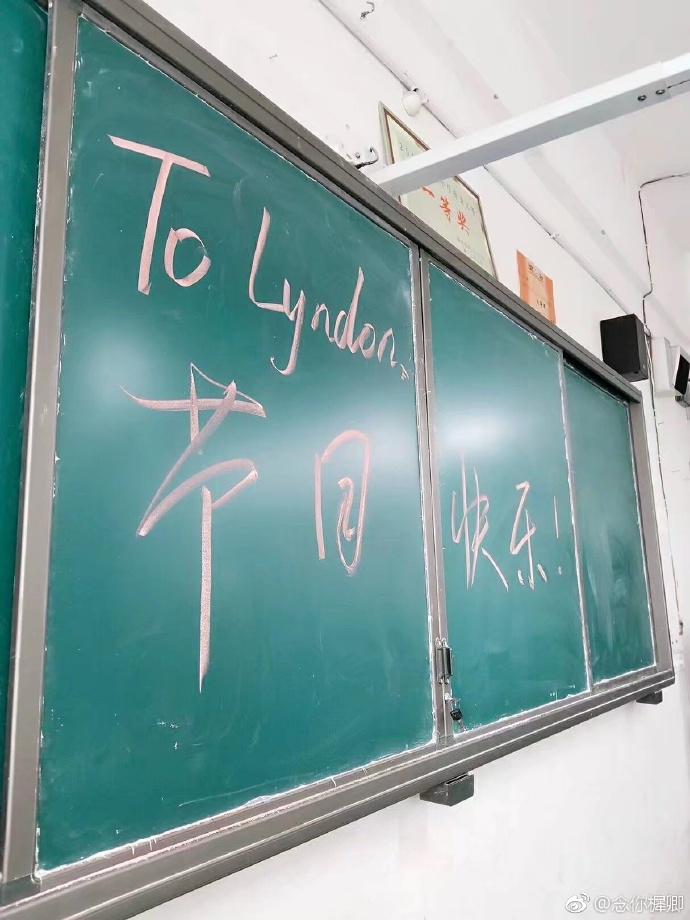 To Lyndon,
节日快乐!
一等奖
@念你樨卿